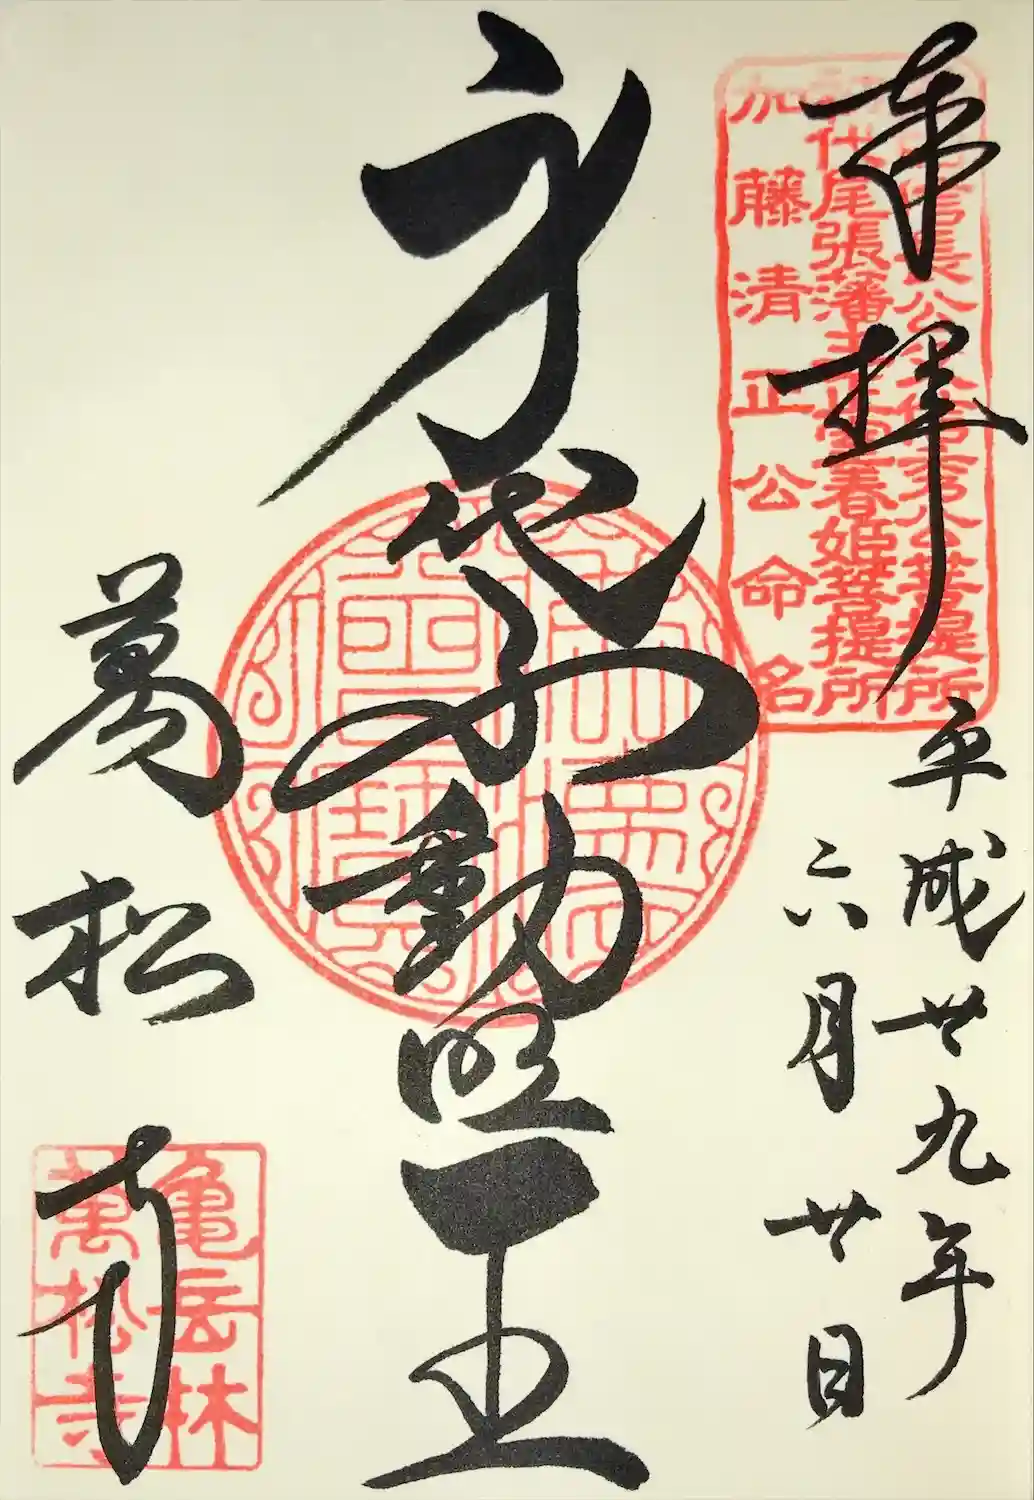 奉拝
織田信長公父信秀公菩提所
初代尾張藩主正室春姫菩提所
加藤清正公命名
平成廿九年
六月廿日
身代不動明王
萬松寺
亀岳林
萬松寺